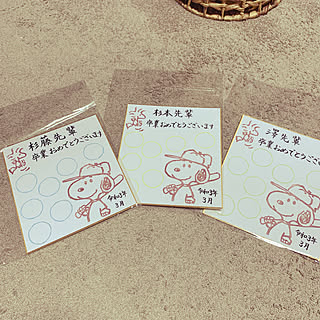 杉藤先輩
卒業おめでとうございます
令和3年
3月
杉本先輩
卒業おめでとうございます
令和3年
3月
澤先輩
卒業おめでとうございます
令和3年
3月